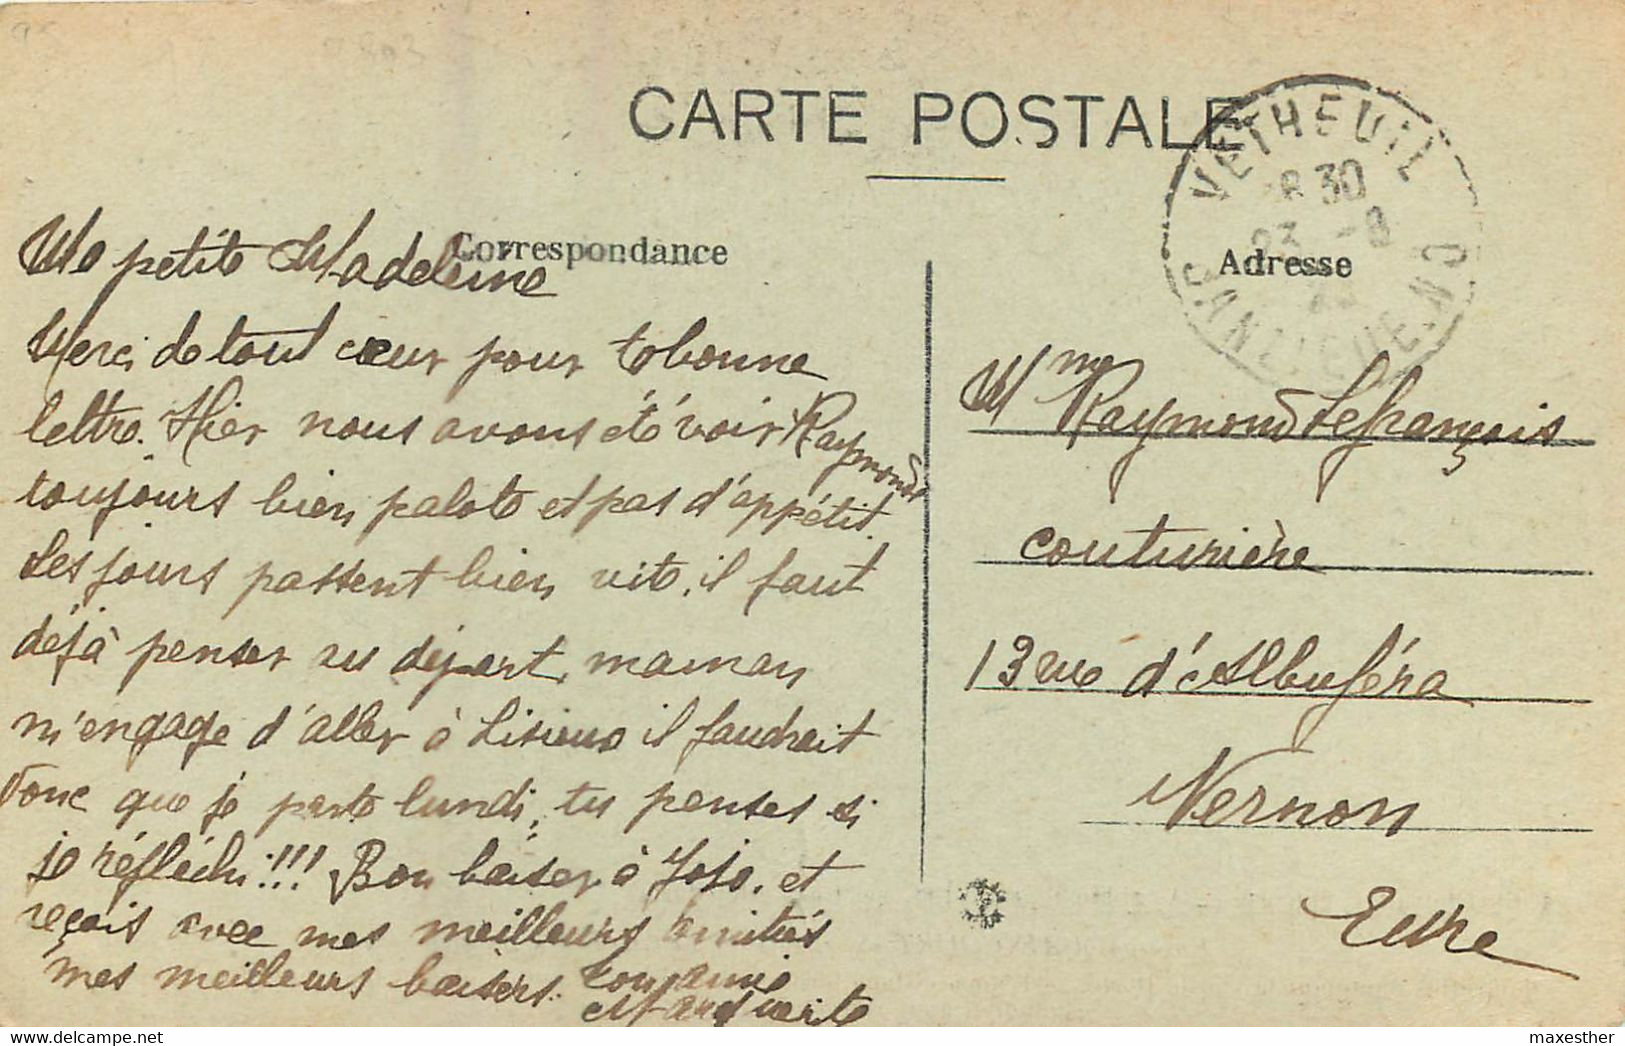 CARTE POSTALE
VETHEUIL
8 30
23 -8
Correspondance
Adresse
Ma petite Madeleine
Merci de tout cœur pour ta bonne
lettre. Hier nous avons été voir Raymonde
toujours bien palote et pas d'appétit.
Les jours passent bien vite, il faut
déjà penser au départ, maman
m'engage d'aller à Lisieux il faudrait
donc que je parte lundi, tu penses si
je réfléchi!!! Bon baiser à Jojo. et
reçois avec mes meilleurs amitiés
mes meilleurs baisers. ton amie
Marguerite
Mme Raymond Lefrançois
couturière
13 rue d'Albuféra
Vernon
Eure
maxesther